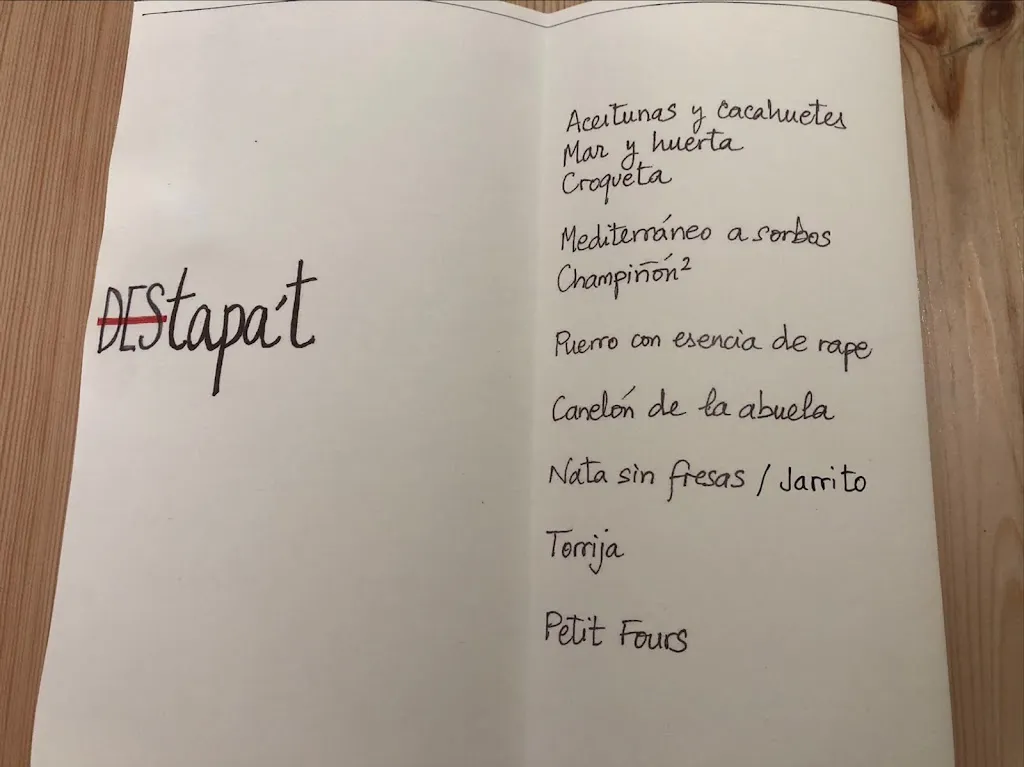 DEStapa't
Aceitunas y Cacahuetes
Mar y huerta
Croqueta
Mediterráneo a sorbos
Champiñón²
Puerro con esencia de rape
Canelón de la abuela
Nata sin fresas / Jarrito
Torrija
Petit Fours